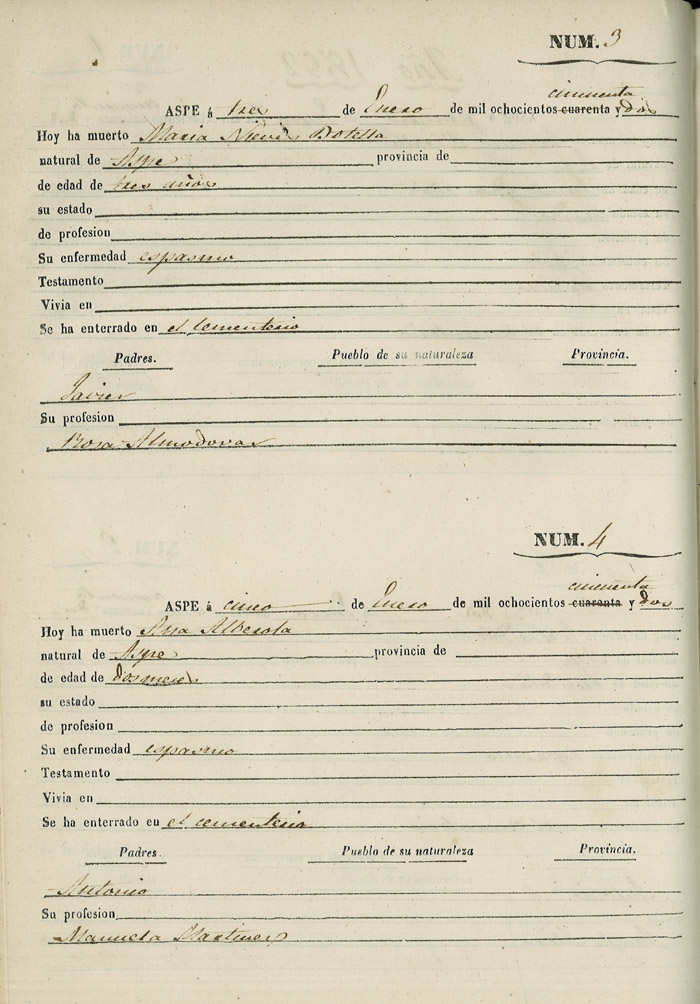 NUM. 3
cincuenta
ASPE á tres de Enero de mil ochocientos cuarenta y dos
Hoy ha muerto Maria Nieves Botella
natural de Aspe provincia de
de edad de tres años
su estado
de profesion
Su enfermedad espasmo
Testamento
Vivia en
Se ha enterrado en el cementerio
Padres. Pueblo de su naturaleza Provincia.
Javier
Su profesion
Rosa Almodovar
NUM. 4
cincuenta
ASPE á cinco de Enero de mil ochocientos cuarenta y dos
Hoy ha muerto Ana Alberola
natural de Aspe provincia de
de edad de dos meses
su estado
de profesion
Su enfermedad espasmo
Testamento
Vivia en
Se ha enterrado en el cementerio
Padres. Pueblo de su naturaleza Provincia.
Antonio
Su profesion
Manuela Martinez